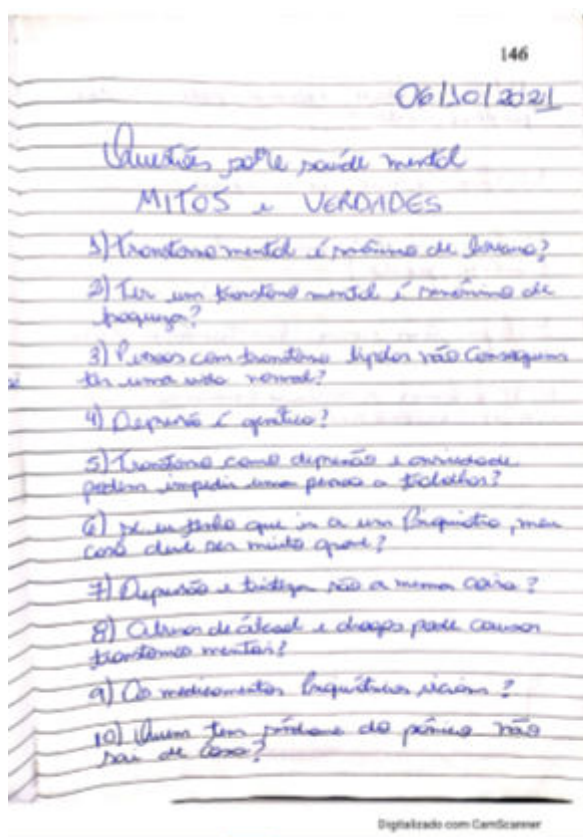 146
06/10/2021
Questões sobre saúde mental
MITOS e VERDADES
1) Transtorno mental é sinônimo de loucura?
2) Ter um transtorno mental é sinônimo de
fraqueza?
3) Pessoas com transtorno bipolar não conseguem
ter uma vida normal?
4) Depressão é genético?
5) Transtorno como depressão e ansiedade
podem impedir uma pessoa a trabalhar?
6) se eu tenho que ir a um Psiquiatra, meu
caso deve ser muito grave?
7) Depressão e tristeza são a mesma coisa?
8) Abuso de álcool e drogas pode causar
transtornos mentais?
9) Os medicamentos Psiquiátricos viciam?
10) Quem tem síndrome do pânico não
sai de casa?
Digitalizado com CamScanner